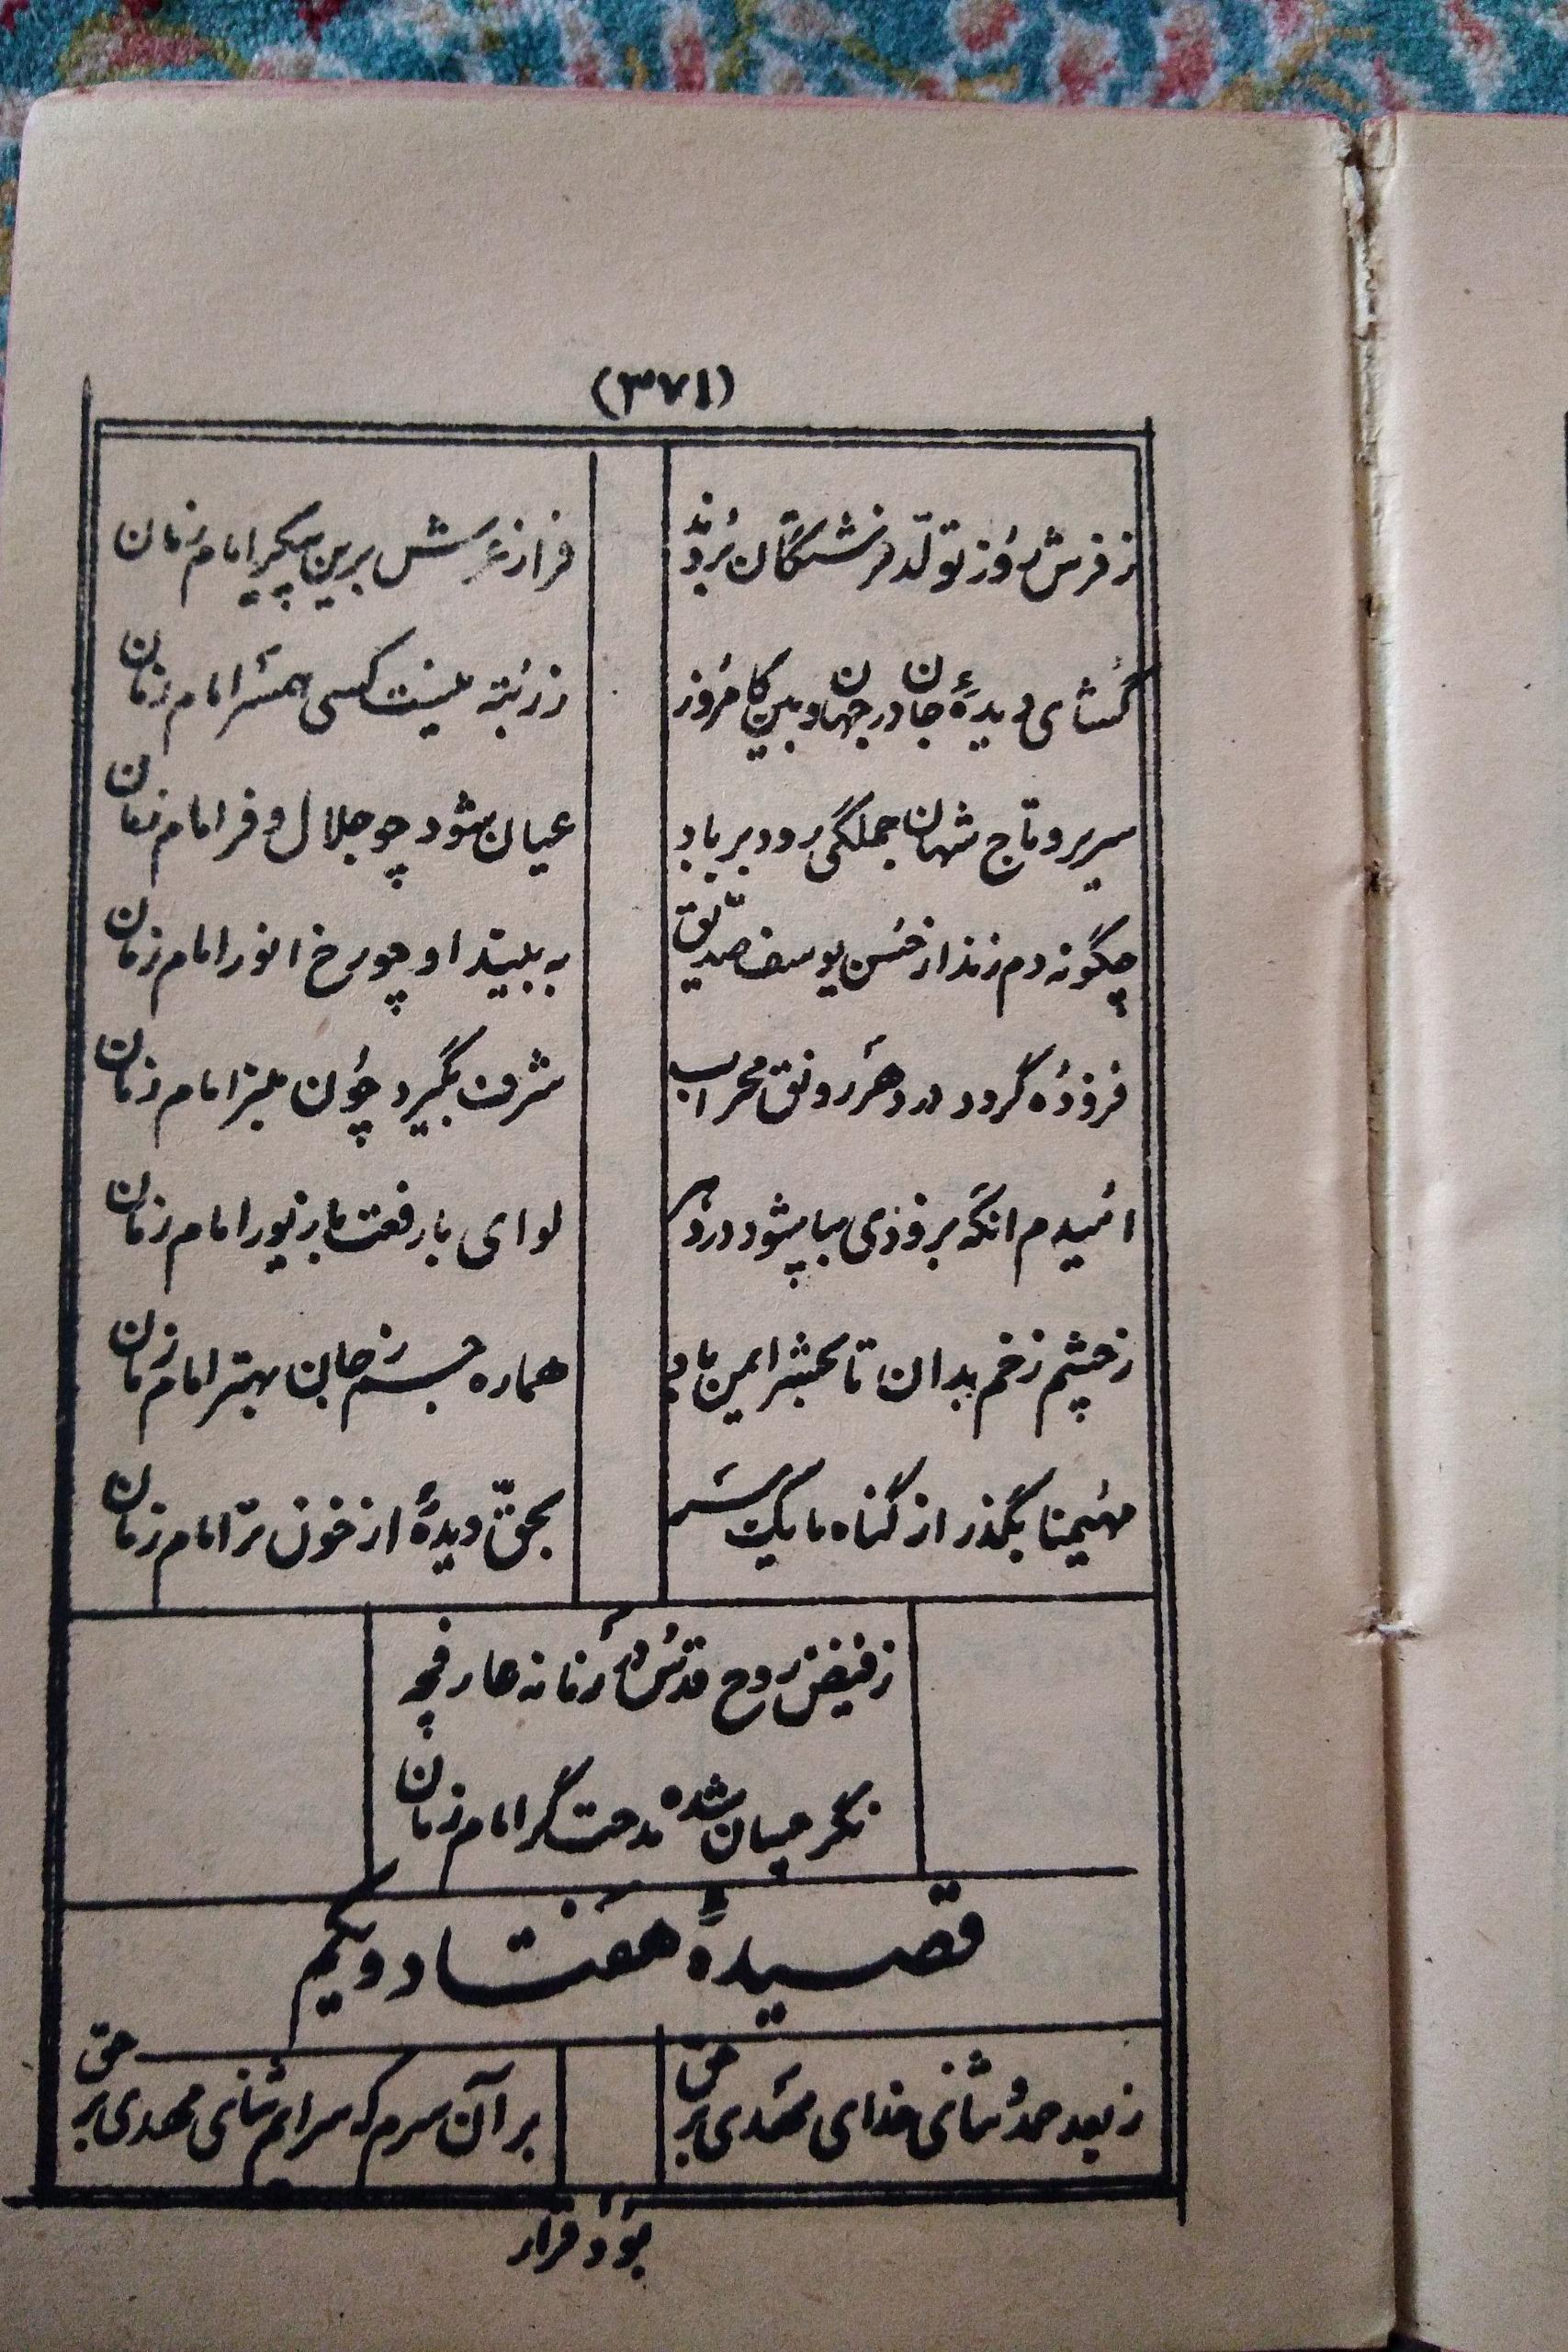 (۳۷۱)
ز فرش روز تولّد فرشتگان بُردند
فراز عرش برین پیکر امام زمان
گشای دیدهٔ جان در جهان و بین کامروز
ز رتبه نیست کسی همسَر امام زمان
سریر و تاج شهان جملگی رود بر باد
عیان بشود چو جلال و فر امام زمان
چگونه دم زند از حُسن یوسف صدّیق
به بیند او چو رخ انور امام زمان
فزوده گردد در دهَر رونق محراب
شرف بگیرد چُون منبر امام زمان
اُمیدم انکه بروزی بپا شود در دهر
لوای با رفعت با زیور امام زمان
ز چشم زخم بدان تا بحشر ایمن باد
هماره جسم ز جان بهتر امام زمان
مهُیمنا بگذر از گناه ما یکسَر
بحقّ دیدهٔ از خون تر امام زمان
ز فیض روح قدُس در زمانه عارفچه
نگر چسان شده مدحت گر امام زمان
قصیدهٔ هفتاد و یکم
ز بعد حمد و ثنای خدای محمّدی بر حق
بر آن سرم که سرایم ثنای مهدی بر حق
بوَد قرار